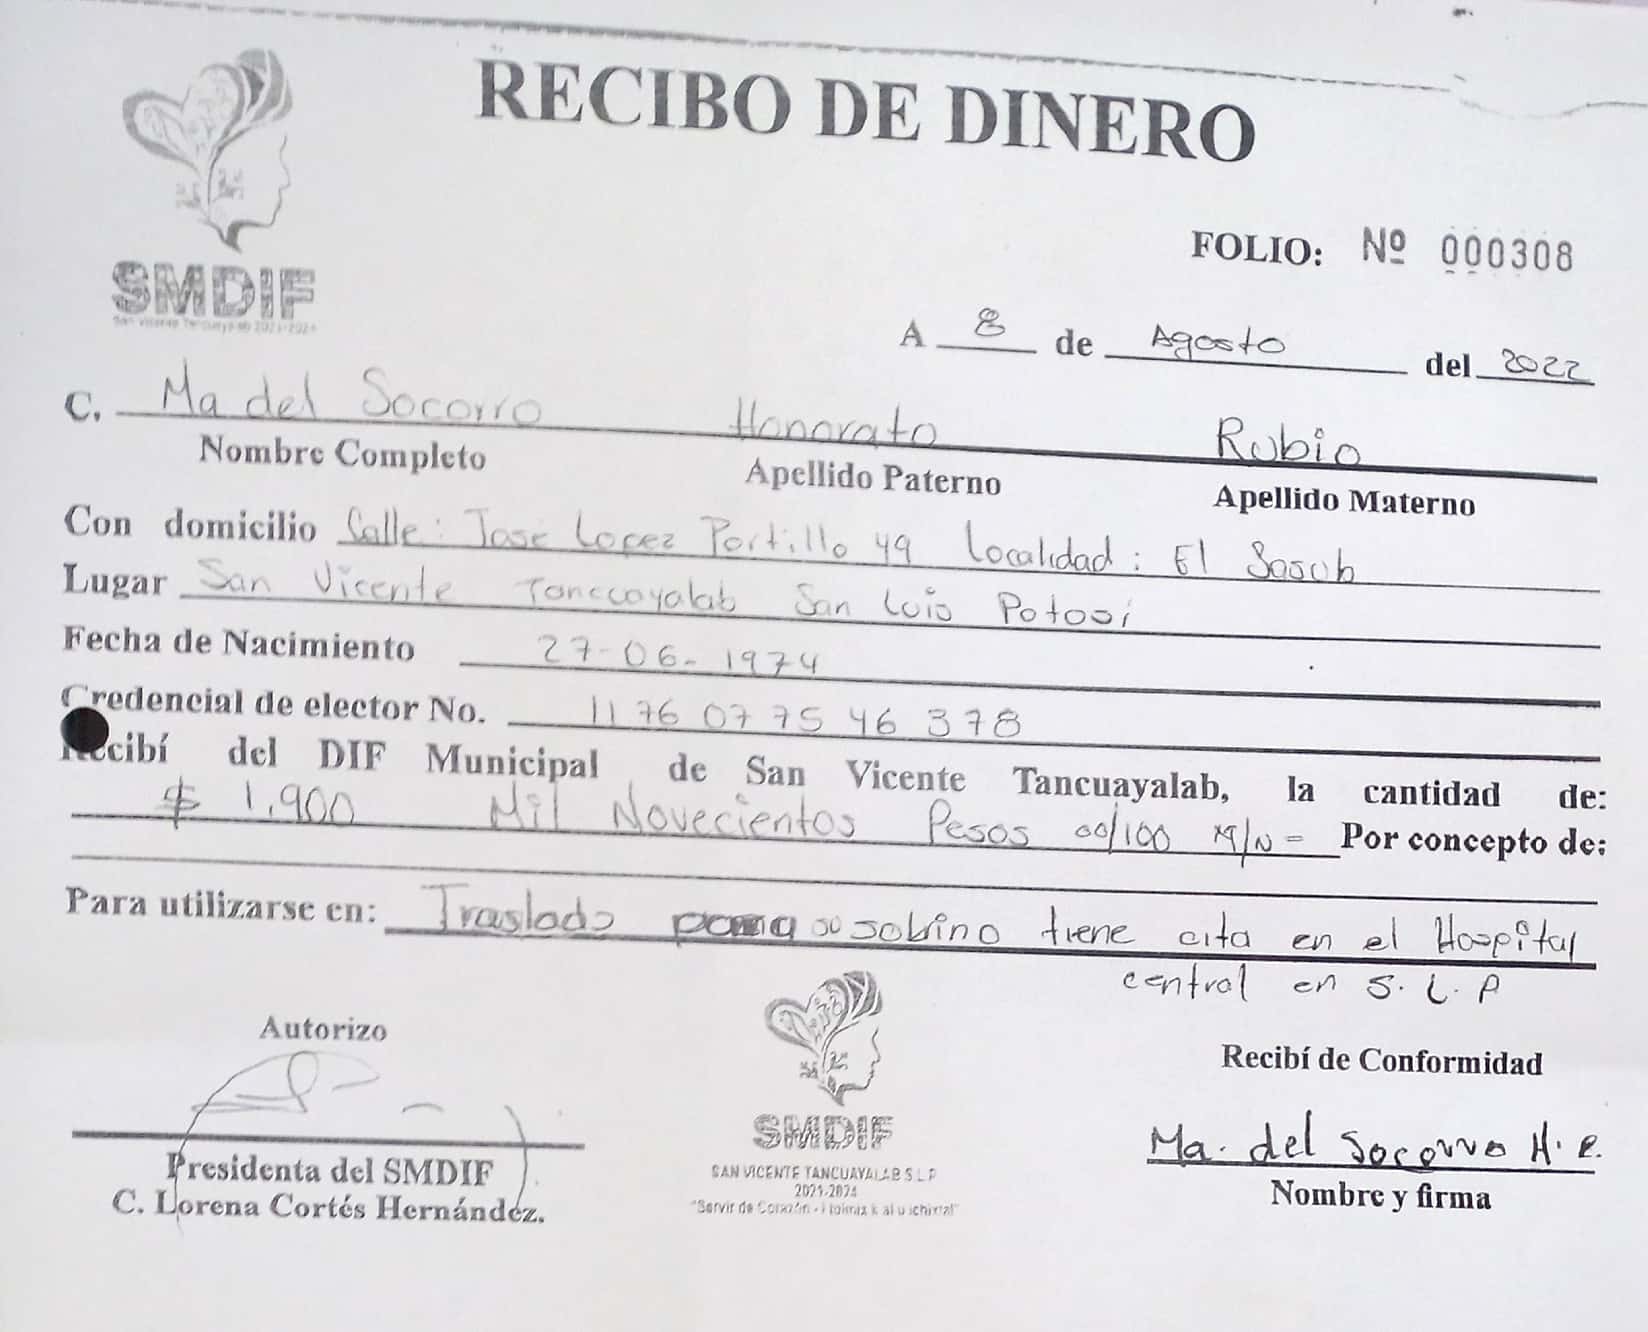 RECIBO DE DINERO
FOLIO: Nº 000308
SMDIF
San Vicente Tancuayalab 2021-2024
A 8 de Agosto del 2022
C. Ma del Socorro Honorato Rubio
Nombre Completo Apellido Paterno Apellido Materno
Con domicilio Calle: Jose Lopez Portillo 49 Localidad: El Sasub
Lugar San Vicente Tancuayalab San Luis Potosi
Fecha de Nacimiento 27-06-1974
Credencial de elector No. 1176077546378
Recibí del DIF Municipal de San Vicente Tancuayalab, la cantidad de:
$ 1,900 Mil Novecientos Pesos 00/100 M/N= Por concepto de:
Para utilizarse en: Traslado para su sobrino tiene cita en el Hospital
central en S.L.P
Autorizo
Recibí de Conformidad
SMDIF
Ma. del Socorro H. R.
Presidenta del SMDIF
SAN VICENTE TANCUAYALAB S.L.P
Nombre y firma
2021-2024
C. Lorena Cortés Hernández.
"Servir de Corazón -